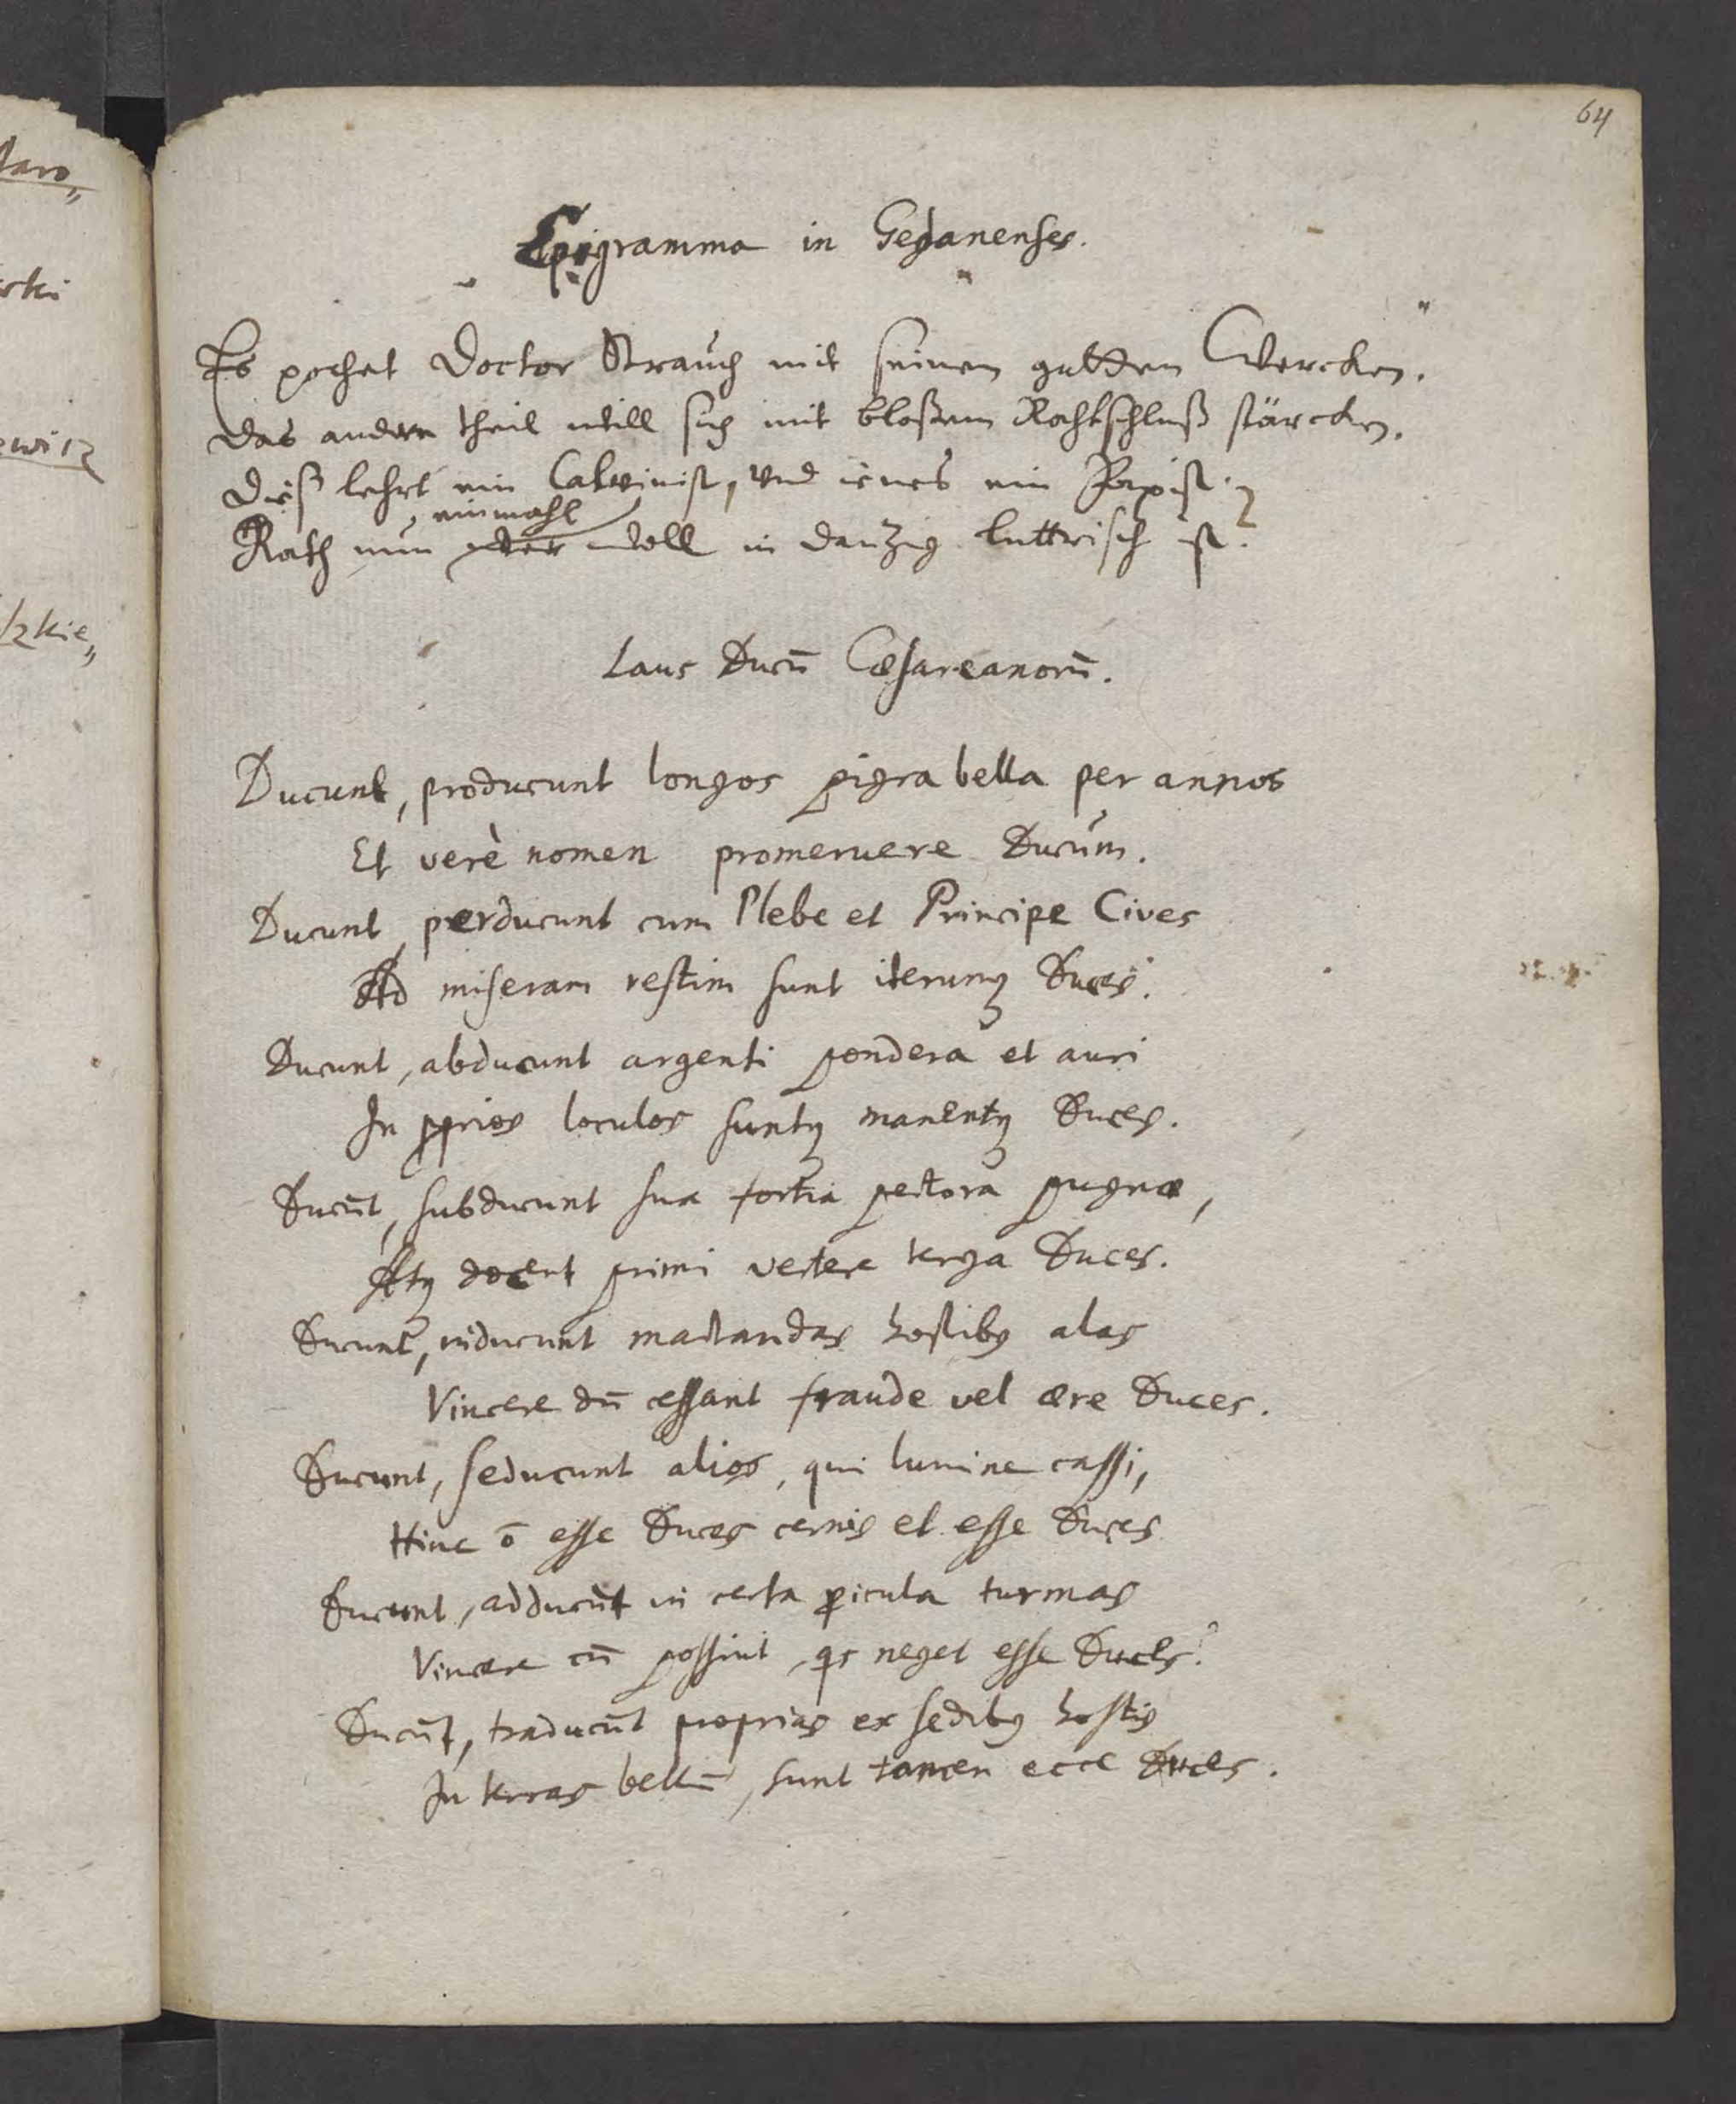 64
Epigramma in Gedanenses.
Es pochet Doctor Strauch mit seinen gutten Wercken.
das andere theil will sich mit bloßem Rahtschluß stärcken.
Dieß lehrt ein Calvinist, und ienes ein Papist.
einmahl
Rath nun wer woll in Danzig luttrisch ist?
Laus Ducū Cæsareanorū.
Ducunt, producunt longos pigra bella per annos
Et verè nomen promeruere Ducum.
Ducunt, perducunt cum Plebe et Principe Cives
Ad miseram restim sunt iterumq; Duces.
Ducunt, abducunt argenti pondera et auri
In pprios loculos suntq; manentq; Duces.
Ducūt, subducunt sua fortia pectora pugnæ,
Atq; docent primi vertere terga Duces.
Ducunt, inducunt mactandas hostibq alas
Vincere dū cessant fraude vel ære Duces.
Ducunt, seducunt alios, qui lumine cassi,
Hinc ō esse Duces cernis et esse Duces
Ducunt, adducūt in certa picula turmas
Vincere cū possint, qs neget esse Duces?
Ducūt, traducūt proprias ex sedibq hostis
In terras bellū, sunt tamen ecce Duces.